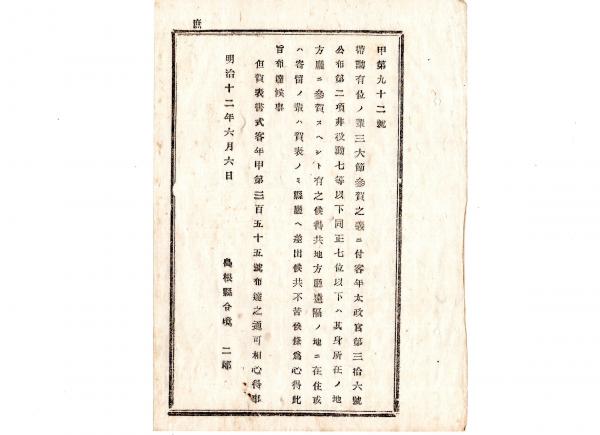 庶
甲第九十二號
帶勳有位ノ輩三大節參賀之義ニ付客年太政官第三拾六號
公布第二項非役勳七等以下同正七位以下ハ其身所在ノ地
方廳ニ參賀スヘシト有之候得共地方廳遠隔ノ地ニ在住或
ハ寄留ノ輩ハ賀表ノミ縣廳ヘ差出候共不苦候條爲心得此
旨布達候事
但賀表書式客年甲第三百五十五號布達之通可相心得事
明治十二年六月六日
島根縣令境二郎